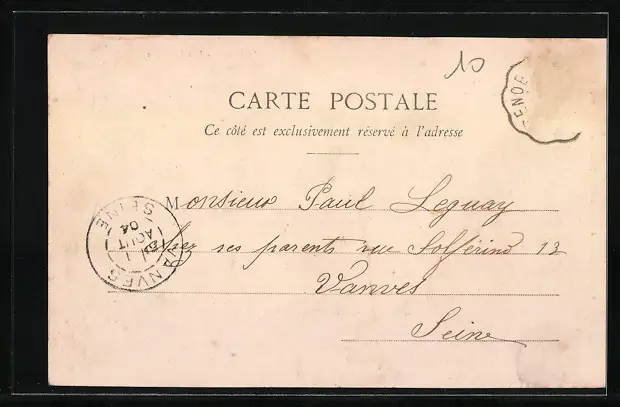 10
CARTE POSTALE
Ce côté est exclusivement réservé à l'adresse
Monsieur Paul Leguay
chez ses parents rue Solférino 13
Vanves
Seine
VANVES
SEINE
AOUT
04